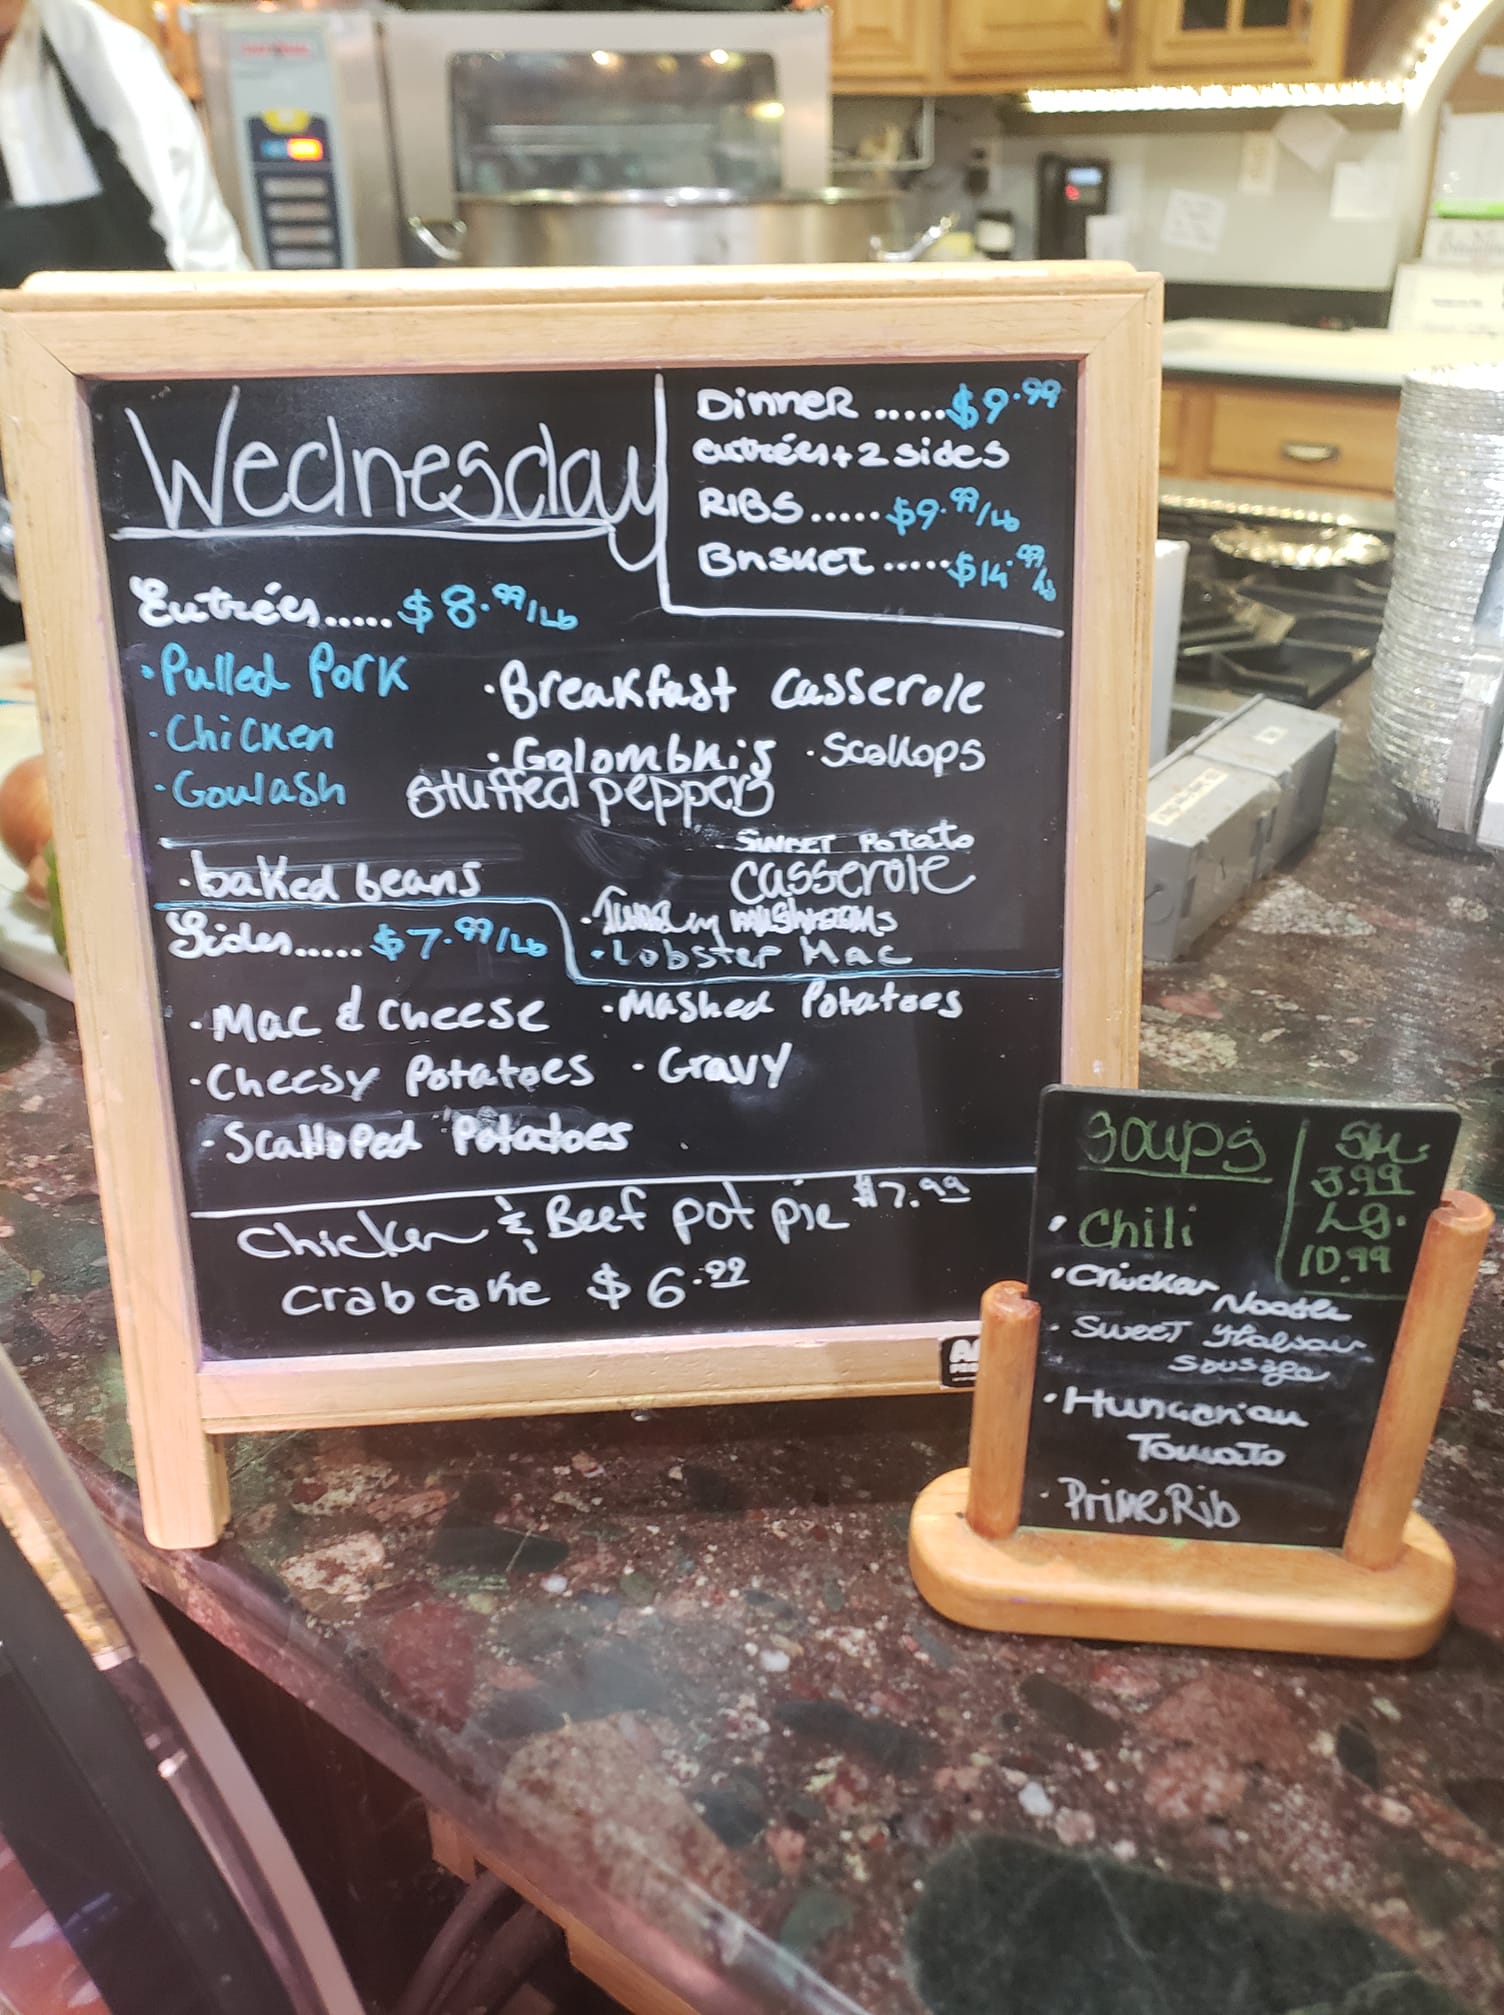 Wednesday
Dinner .....$9.99
entrées + 2 sides
RIBS.....$9.99/Lb
Brisket .....$14.99/Lb
Entrées.....$8.99/Lb
·Pulled Pork
·Breakfast Casserole
·Chicken
·Golombkis
·Scallops
·Goulash
Stuffed peppers
·Sweet Potato
Casserole
·baked beans
mushrooms
Sides.....$7.99/Lb
·Lobster Mac
·Mac & Cheese
·Mashed Potatoes
·Cheesy Potatoes
·Gravy
·Scalloped Potatoes
Chicken & Beef pot pie $7.99
crab cake $6.99
Soups
Sm.
3.99
Lg.
10.99
·Chili
·Chicken Noodle
·Sweet Italian
Sausage
·Hungarian
Tomato
·Prime Rib